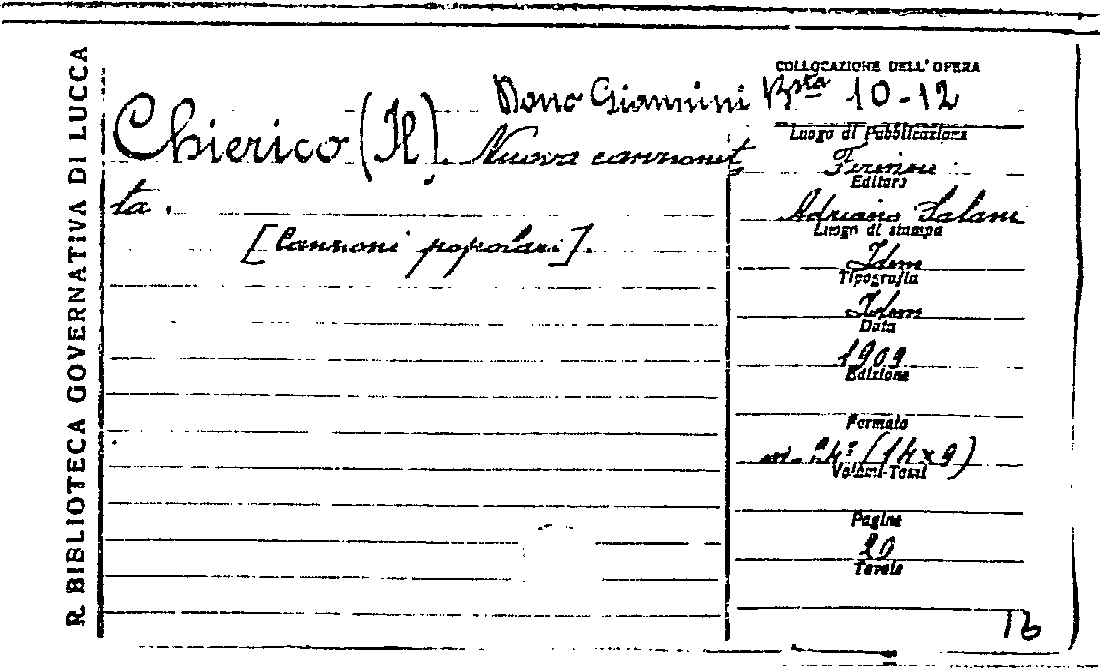 R. BIBLIOTECA GOVERNATIVA DI LUCCA
COLLOCAZIONE DELL'OPERA
Dono Giannini Bsta 10-12
Chierico (Il). Nuova canzonet
ta.
[Canzoni popolari].
Luogo di Pubblicazione
Firenze
Editore
Adriano Salani
Luogo di stampa
Idem
Tipografia
Idem
Data
1909
Edizione
Formato
in-24° (14x9)
Volumi-Tomi
Pagine
20
Tavole